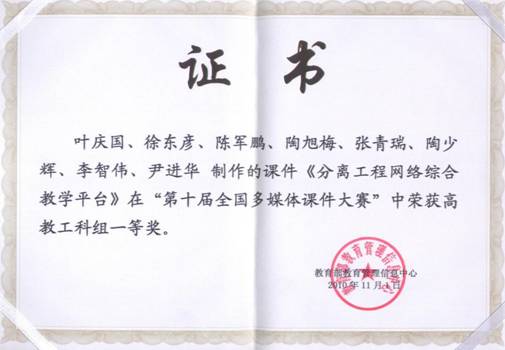 证 书
叶庆国、徐东彦、陈军鹏、陶旭梅、张青瑞、陶少
辉、李智伟、尹进华 制作的课件《分离工程网络综合
教学平台》在“第十届全国多媒体课件大赛”中荣获高
教工科组一等奖。
教育部教育管理信息中心
2010年11月1日
教育部教育管理信息中心